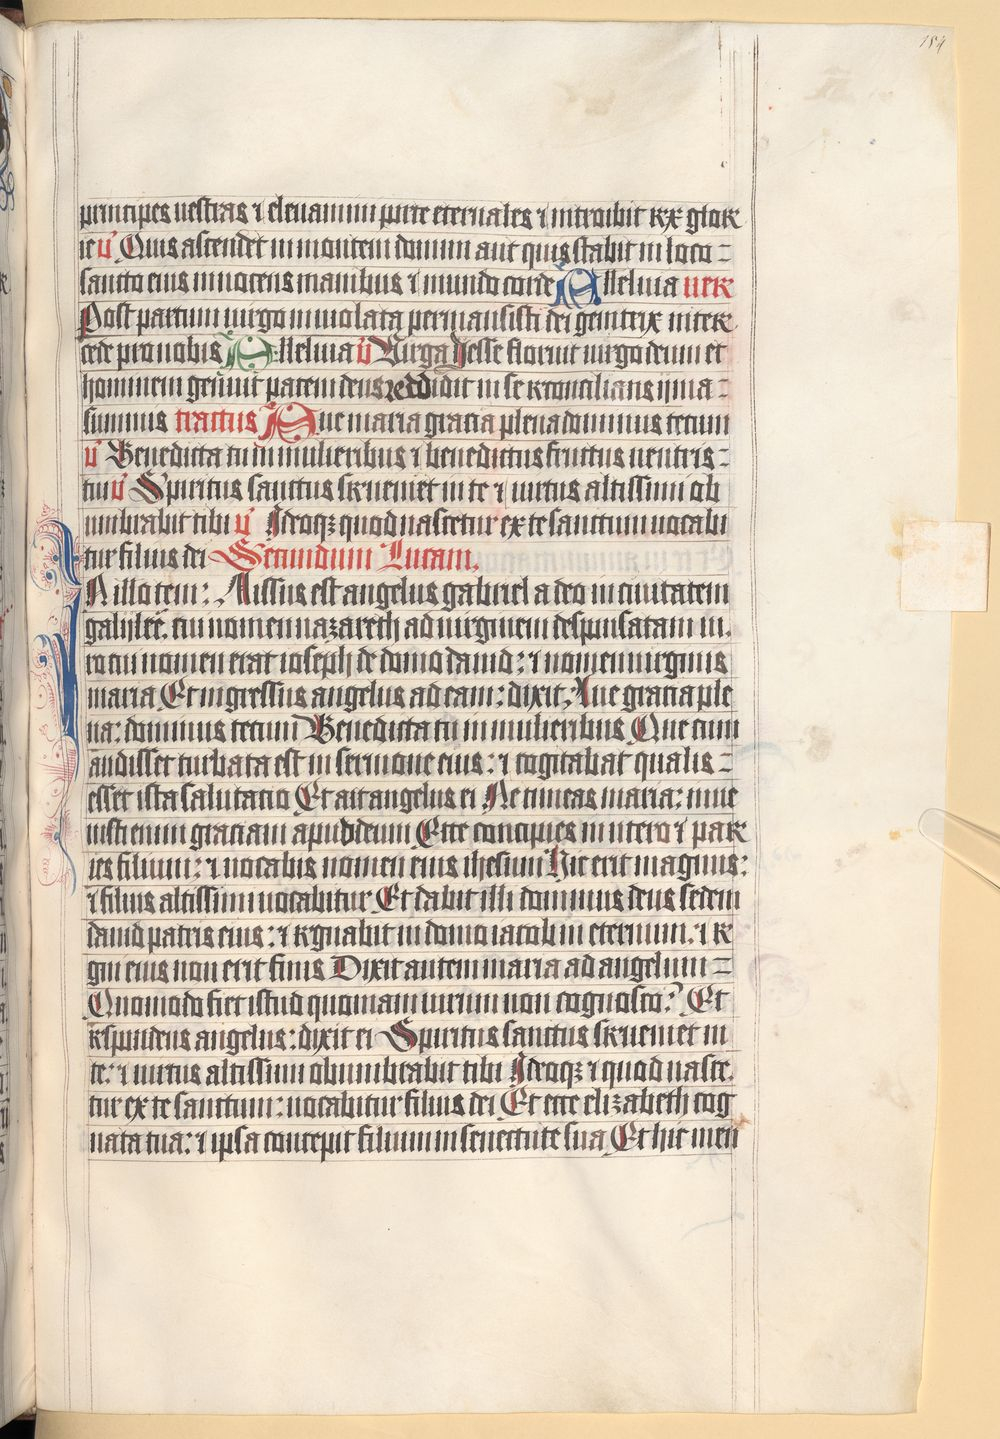 184
principes uestras ⁊ eleuamini porte eternales ⁊ introibit rex glor
ie v̉ Quis ascendet in montem domini aut quis stabit in loco
sancto eius innocens manibus ⁊ mundo corde Alleluia uer
Post partum uirgo inuiolata permansisti dei genitrix inter
cede pro nobis Alleluia v̉ Uirga Jesse floruit uirgo deum et
hominem genuit pacem deus reddidit in se reconcilians yma
summis tractus Aue maria gracia plena dominus tecum
v̉ Benedicta tu in mulieribus ⁊ benedictus fructus uentris
tui v̉ Spiritus sanctus superueniet in te ⁊ uirtus altissimi ob
umbrabit tibi v̉ Ideoqꝫ quod nascetur ex te sanctum uocabi
tur filius dei Secundum Lucam.
IN illo tem: Missus est angelus gabriel a deo in ciuitatem
galylee. cui nomen nazareth ad uirginem desponsatam ui.
ro cui nomen erat ioseph de domo dauid: ⁊ nomen uirginis
maria Et ingressus angelus ad eam: dixit: Aue gracia ple
na: dominus tecum Benedicta tu in mulieribus Que cum
audisset turbata est in sermone eius: ⁊ cogitabat qualis
esset ista salutatio Et ait angelus ei Ne timeas maria: inue
nisti enim graciam apud deum Ecce concipies in utero ⁊ par
ies filium: ⁊ uocabis nomen eius ihesum Hic erit magnus:
⁊ filius altissimi uocabitur Et dabit illi dominus deus sedem
dauid patris eius: ⁊ regnabit in domo iacob in eternum. ⁊ re
gni eius non erit finis Dixit autem maria ad angelum
Quomodo fiet istud quoniam uirum non cognosco? Et
respondens angelus: dixit ei Spiritus sanctus superueniet in
te: ⁊ uirtus altissimi obumbrabit tibi Ideoqꝫ ⁊ quod nasce.
tur ex te sanctum: uocabitur filius dei Et ecce elizabeth cog
nata tua: ⁊ ipsa concepit filium in senectute sua Et hic men